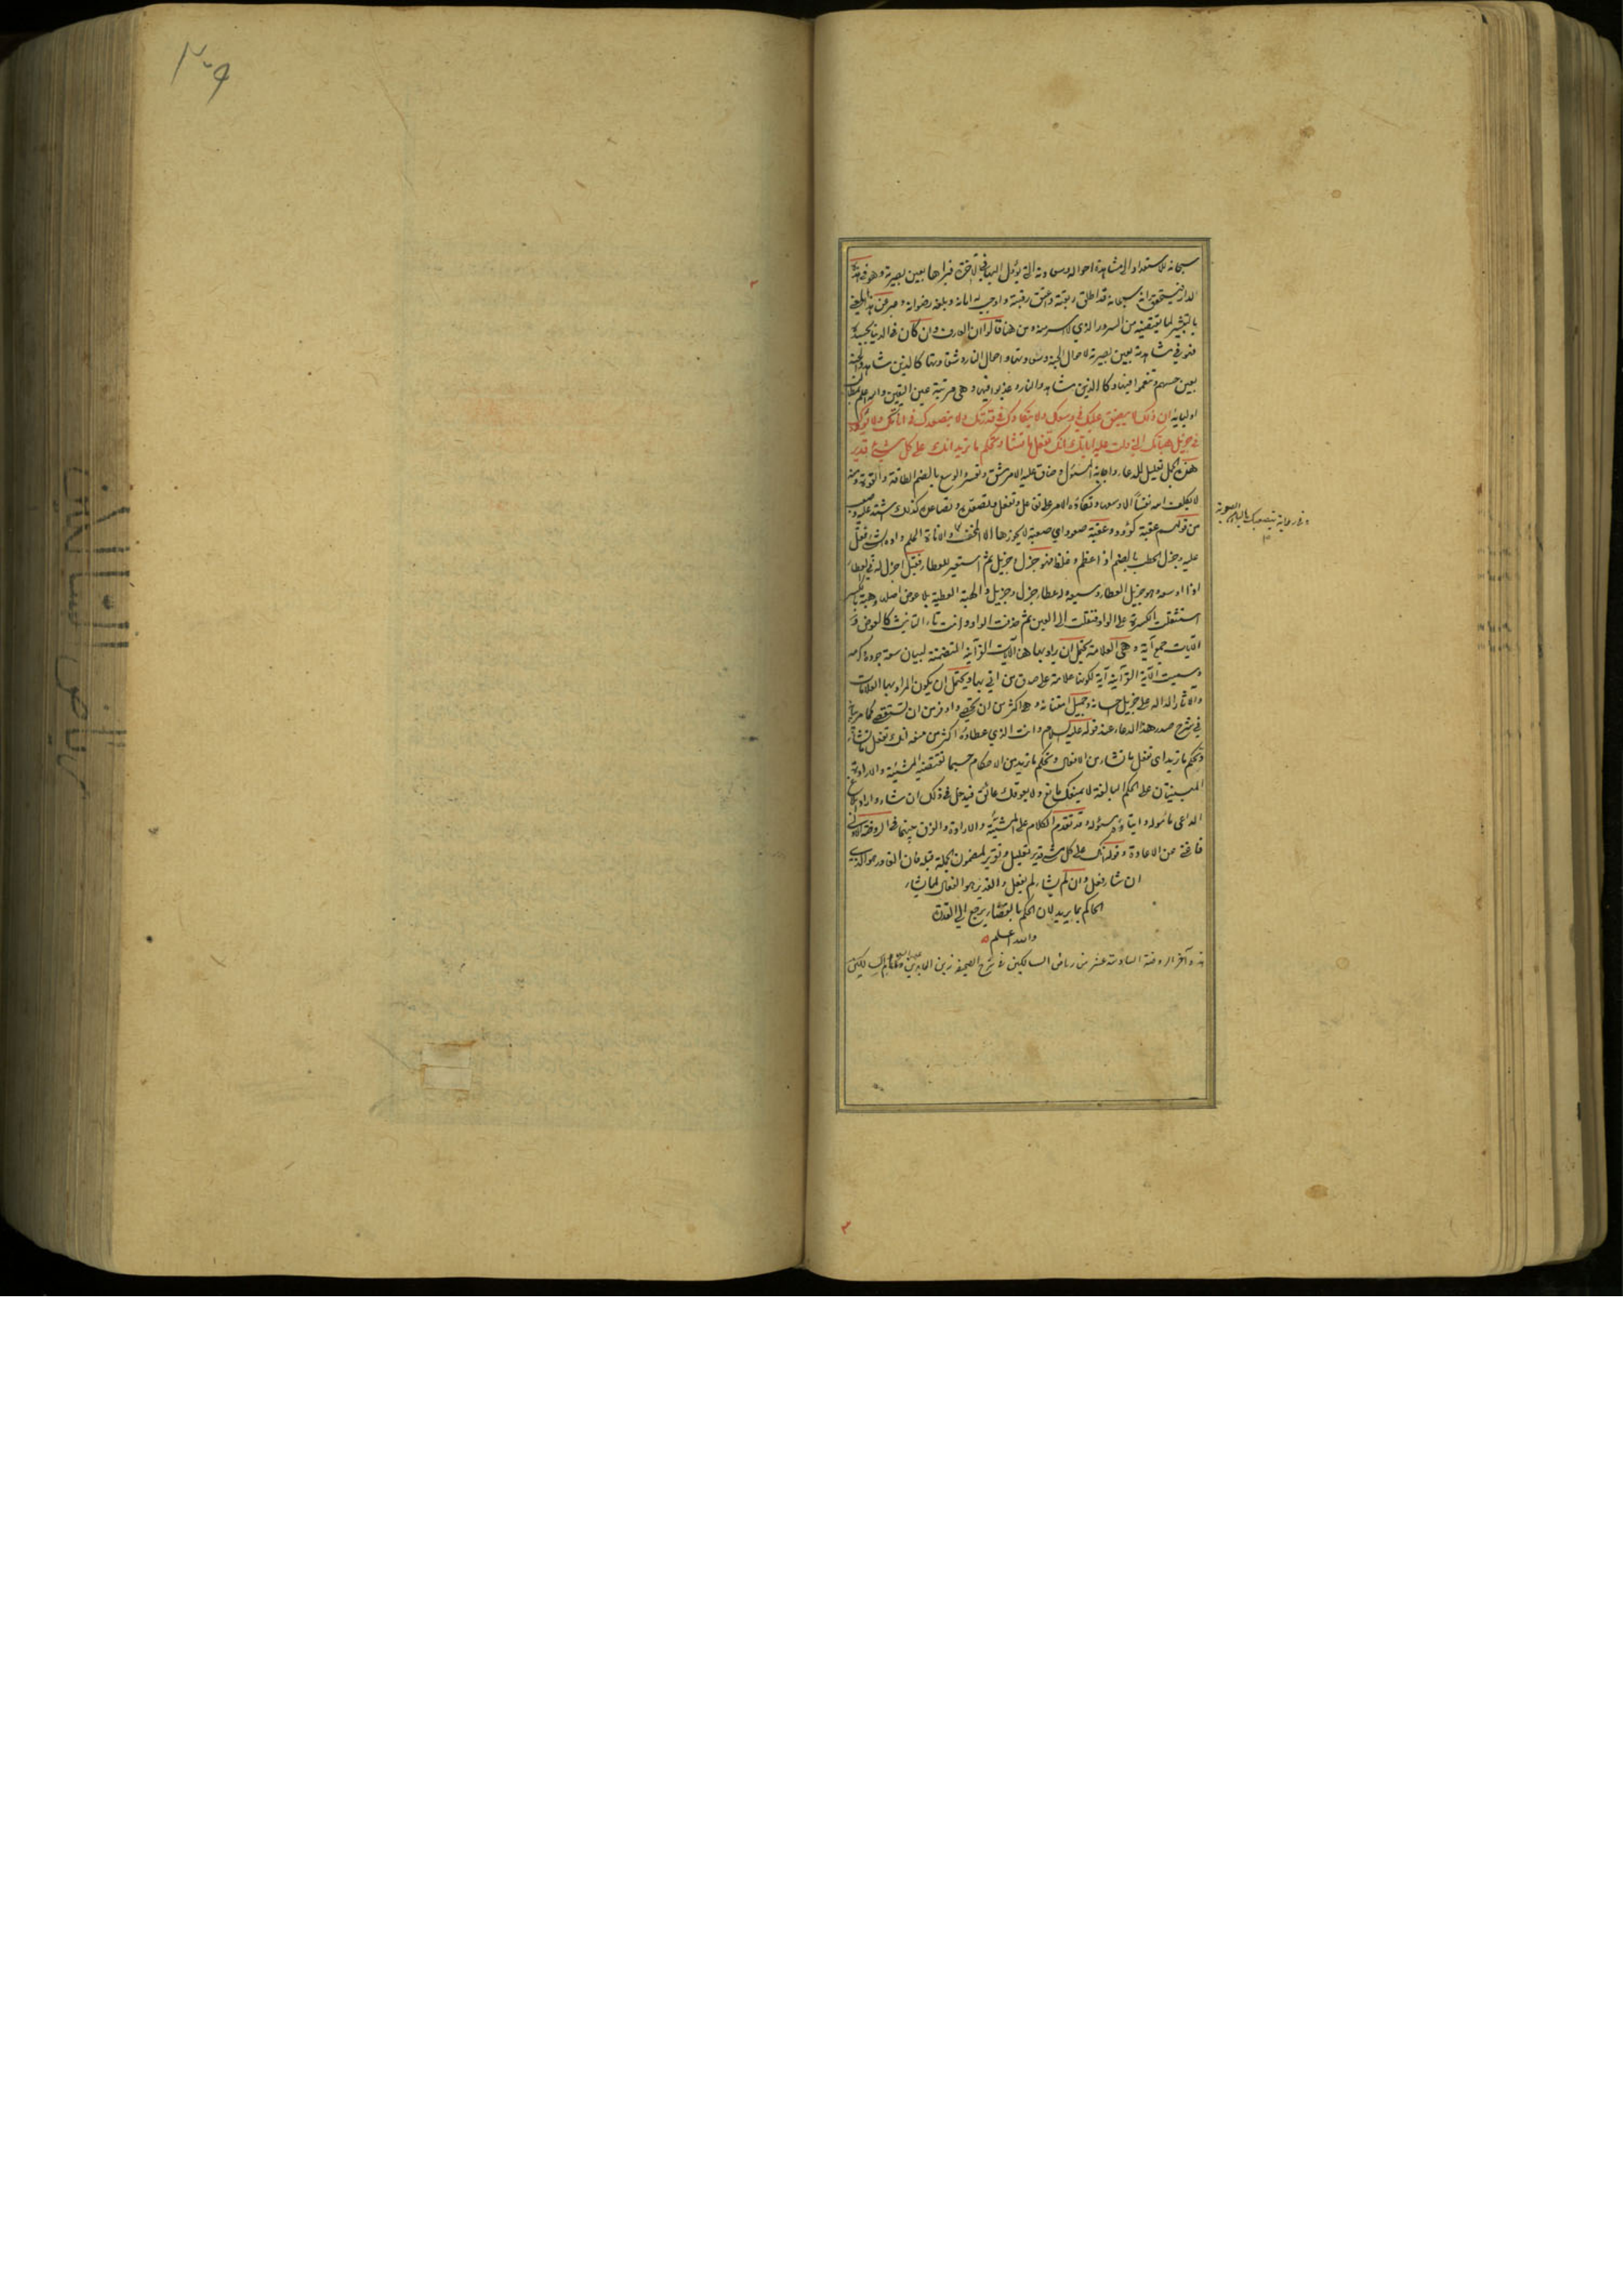 سبحانه للاستعداد الى مشاهدة احواله وسعادته التي يؤل اليها في الآخرة فيراها بعين بصيرته وهو في هذه
الدار فيتحقق انه سبحانه قد اطلق ربقته واعتق رقبته واوجب له امانه وبلغه رضوانه وعبر عن هذا المعنى
بالتبشير لما يقتضيه من السرور الذي لا سرور من هنا قالوا ان العارف وان كان في الدنيا بجسده
فهو في مشاهدته بعين بصيرته لاحوال الجنة وسعادتها واحوال النار وشقاوتها كالذين شاهدوا الجنة
بعين حسهم وتنعموا فيها وكالذين شاهدوا النار وعذبوا فيها وهي مرتبة عين اليقين والله اعلم بمقامات
اوليائه ان ذلك لا يضيق عليك في وسعك ولا يتكاءدك في قدرتك ولا يتصعدك في اناتك ولا يؤدك
في جزيل هباتك التي دلت عليها آياتك انك تفعل ما تشاء وتحكم ما تريد انك على كل شيء قدير
هذه الجمل تعليل للدعاء واجابة المسئول وضاق عليه الامر شق وتعسر والوسع بالضم الطاقة والقوة ومنه
لا يكلف الله نفسا الا وسعها وتكاءده الامر على تفاعل وتفعل وتصعده وتصاعده كذلك شق عليه وصعب
من قولهم عقبة كؤود وعقبة صعود اي صعبة لا يجوزها الا المخف والاناة الحلم واده اثقله فثقل
عليه وجزل الحطب بالضم اذا عظم وغلظ فهو جزل وجزيل ثم استعير للعطاء فقيل اجزل له في العطاء
اذا اوسعه وهو جزيل العطاء وسيعه وعطاء جزل وجزيل والهبة العطية بلا عوض اصله وهبة بالكسر
استثقلت الكسرة على الواو فنقلت الى العين ثم حذفت الواو وانت تاء التانيث كالعوض
الآيات جمع آية وهي العلامة يحتمل ان يراد بها هنا الآيات القرآنية المتضمنة لبيان سعة جوده وكرمه
وسميت الآية القرآنية آية لكونها علامة على صدق من اتى بها ويحتمل ان يكون المراد بها العلامات
والآثار الدالة على جزيل احسانه وجميل امتنانه وهي اكثر من ان تحصى واوفر من ان تستقصى كما مر بيانه
في شرح صدر هذا الدعاء عند قوله عليه السلام وانت الذي عطاؤه اكثر من منعه انك تفعل ما تشاء
وتحكم ما تريد اى تفعل ما تشاء من الافعال وتحكم ما تريد من الاحكام حسبما تقتضيه المشيئة والارادة
المبنيتان على الحكم البالغة لا يمنعك مانع ولا يعوقك عائق فيدخل في ذلك ان شاء واراد
الداعى مأموله وايتاؤه مسئوله وقد تقدم الكلام على المشيئة والارادة والفرق بينهما في الروضة الاولى
فاغنى عن الاعادة وقوله انك على كل شيء قدير تعليل وتقرير لمضمون الجملة قبله فان القادر هو الذي
ان شاء فعل وان لم يشاء لم يفعل والقدير هو الفعال لما يشاء
الحاكم بما يريد لان الحكم بالقضاء يرجع الى القدرة
والله اعلم
هذه آخر الروضة السادسة عشر من رياض السالكين في شرح الصحيفه زين العابدين
وفي رواية يتصعبك بالباء من الصعوبة